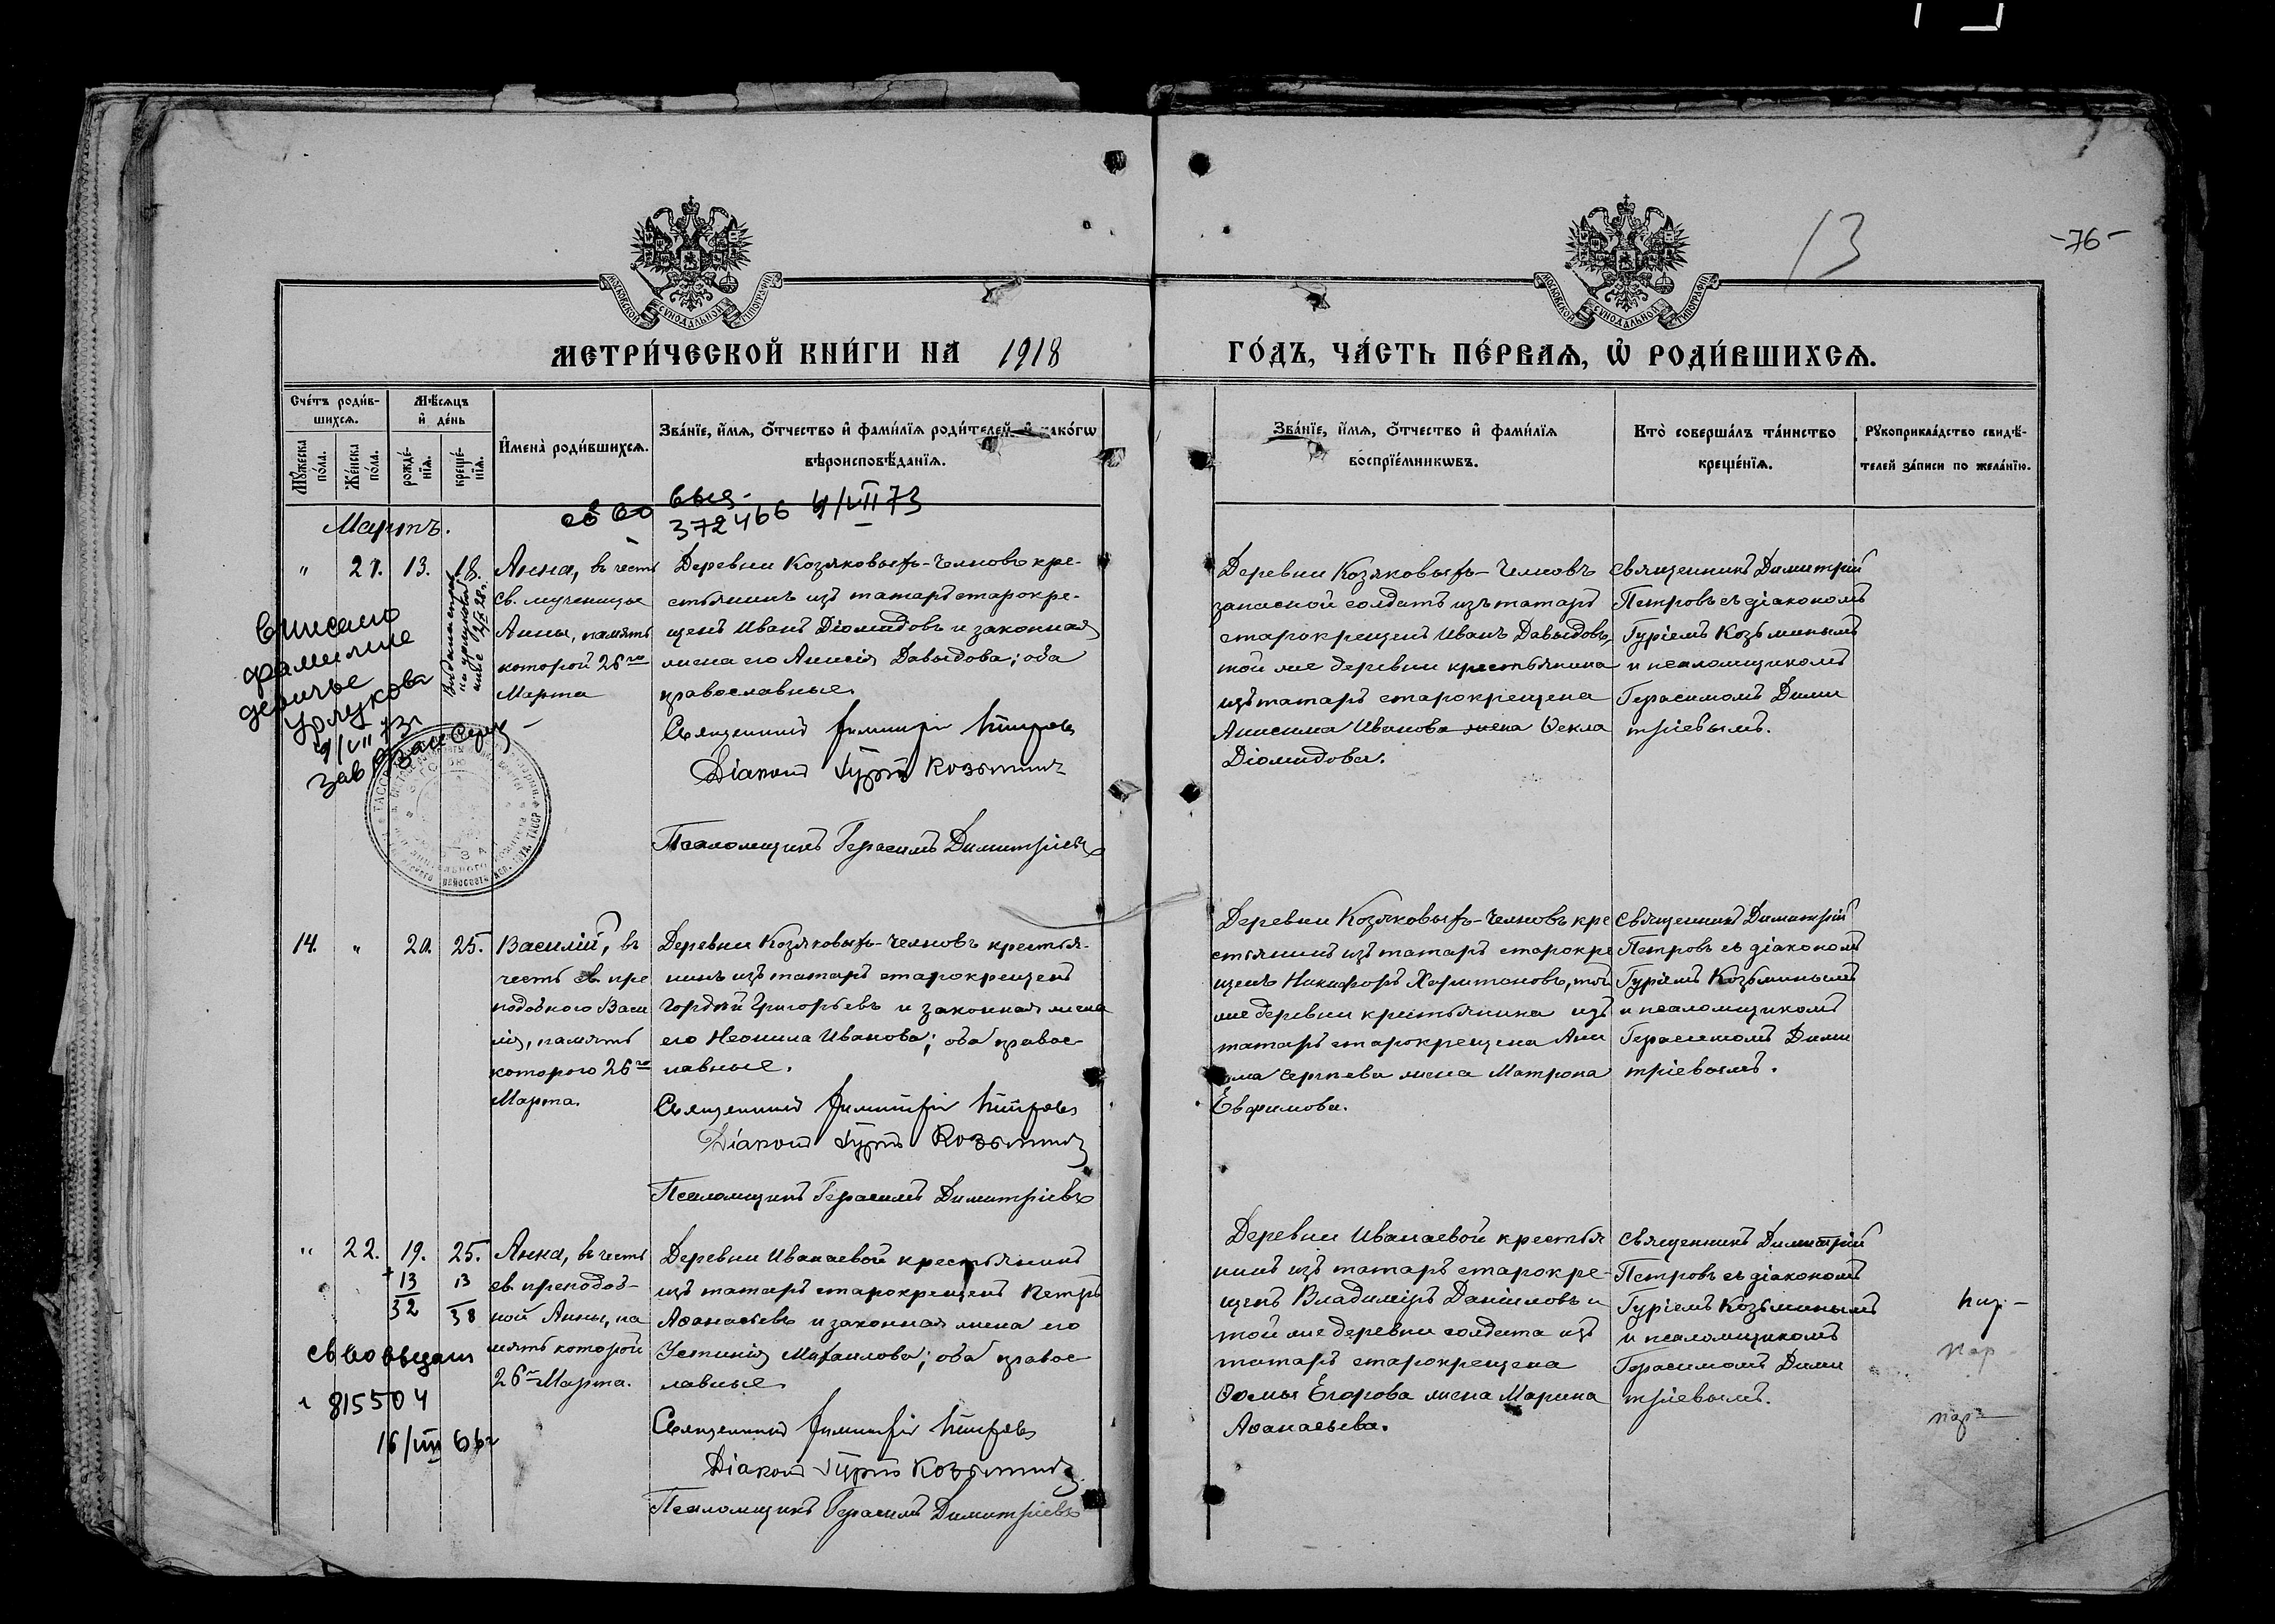 13
-76-
МОСКОВСКОЙ СѴНОДАЛЬНОЙ ТИПОГРАФІИ
МОСКОВСКОЙ СѴНОДАЛЬНОЙ ТИПОГРАФІИ
МЕТРИ́ЧЕСКОЙ КНИ́ГИ НА 1918
ГО́ДЪ, ЧА́СТЬ ПЕ́РВАЯ, Ѡ҆ РОДИ́ВШИХСЯ.
Сче́тъ роди́в-
шихсѧ.
Мꙋ́жеска по́ла.
Же́нска по́ла.
Мѣ́сѧцъ
и҆ де́нь
рожде́-нїѧ.
креще́-нїѧ.
И҆мена̀ роди́вшихсѧ.
Зва́нїе, и҆́мѧ, ѻ҆́тчество и҆ фами́лїѧ роди́телей, и҆ како́гѡ
вѣроисповѣ́данїѧ.
Зва́нїе, и҆́мѧ, ѻ҆́тчество и҆ фами́лїѧ
воспрїе́мникѡвъ.
Кто̀ соверша́лъ та́инство
креще́нїѧ.
Рꙋкоприкла́дство свидѣ́-
телей за́писи по жела́нїю.
св во выд-
372466 4/VII 73
Мартъ.
" 21. 13. 18.
Анна, въ честь
св. мученицы
Анны, память
которой 26го
Марта
Деревни Козяковыхъ-Челновъ кре-
стьянинъ изъ татаръ старокре-
щенъ Иванъ Діомидовъ и законная
жена его Анисія Давыдова; оба
православные.
Священникъ Димитрій Петровъ
Діаконъ Гурій Козьминъ
Псаломщикъ Герасимъ Димитріевъ
Деревни Козяковыхъ-Челновъ
запасной солдатъ изъ татаръ
старокрещенъ Иванъ Давыдовъ,
той же деревни крестьянина
изъ татаръ старокрещена
Анисима Иванова жена Ѳекла
Діомидова.
Священникъ Димитрій
Петровъ съ діакономъ
Гуріемъ Козьминымъ
и псаломщикомъ
Герасимомъ Дими
тріевымъ.
вписано
фамилие
девичье
Урлукова
4/VII 73г
зав
14. " 20. 25.
Василій, въ
честь св. пре
подобного Васи
лія, память
которого 26го
Марта.
Деревни Козяковыхъ-Челновъ крестья-
нинъ изъ татаръ старокрещенъ
Гордѣй Григорьевъ и законная жена
его Неонила Иванова; оба правос-
лавные.
Священникъ Димитрій Петровъ
Діаконъ Гурій Козьминъ
Псаломщикъ Герасимъ Димитріевъ
Деревни Козяковыхъ-Челновъ кре
стьянинъ изъ татаръ старокре
щенъ Никифоръ Харитоновъ, той
же деревни крестьянина изъ
татаръ старокрещена
Сергѣева жена Матрона
Евфимова.
Священникъ Димитрій
Петровъ съ діакономъ
Гуріемъ Козьминымъ
и псаломщикомъ
Герасимомъ Дими
тріевымъ.
" 22. 19. 25.
+13 13
32 38
Анна, въ честь
св. преподоб-
ной Анны, па
мять которой
26го Марта.
Деревни Иванаевой крестьянинъ
изъ татаръ старокрещенъ Петръ
Аѳанасьевъ и законная жена его
Устинія Михаилова; оба правос
лавные.
Священникъ Димитрій Петровъ
Діаконъ Гурій Козьминъ
Псаломщикъ Герасимъ Димитріевъ
Деревни Иванаевой крестья
нинъ изъ татаръ старокре-
щенъ Владиміръ Даніиловъ и
той же деревни солдата изъ
татаръ старокрещена
Ѳомы Егорова жена Марина
Аѳанасьева.
Священникъ Димитрій
Петровъ съ діакономъ
Гуріемъ Козьминымъ
и псаломщикомъ
Герасимомъ Дими
тріевымъ.
св во выдали
815504
16/VIII 66г